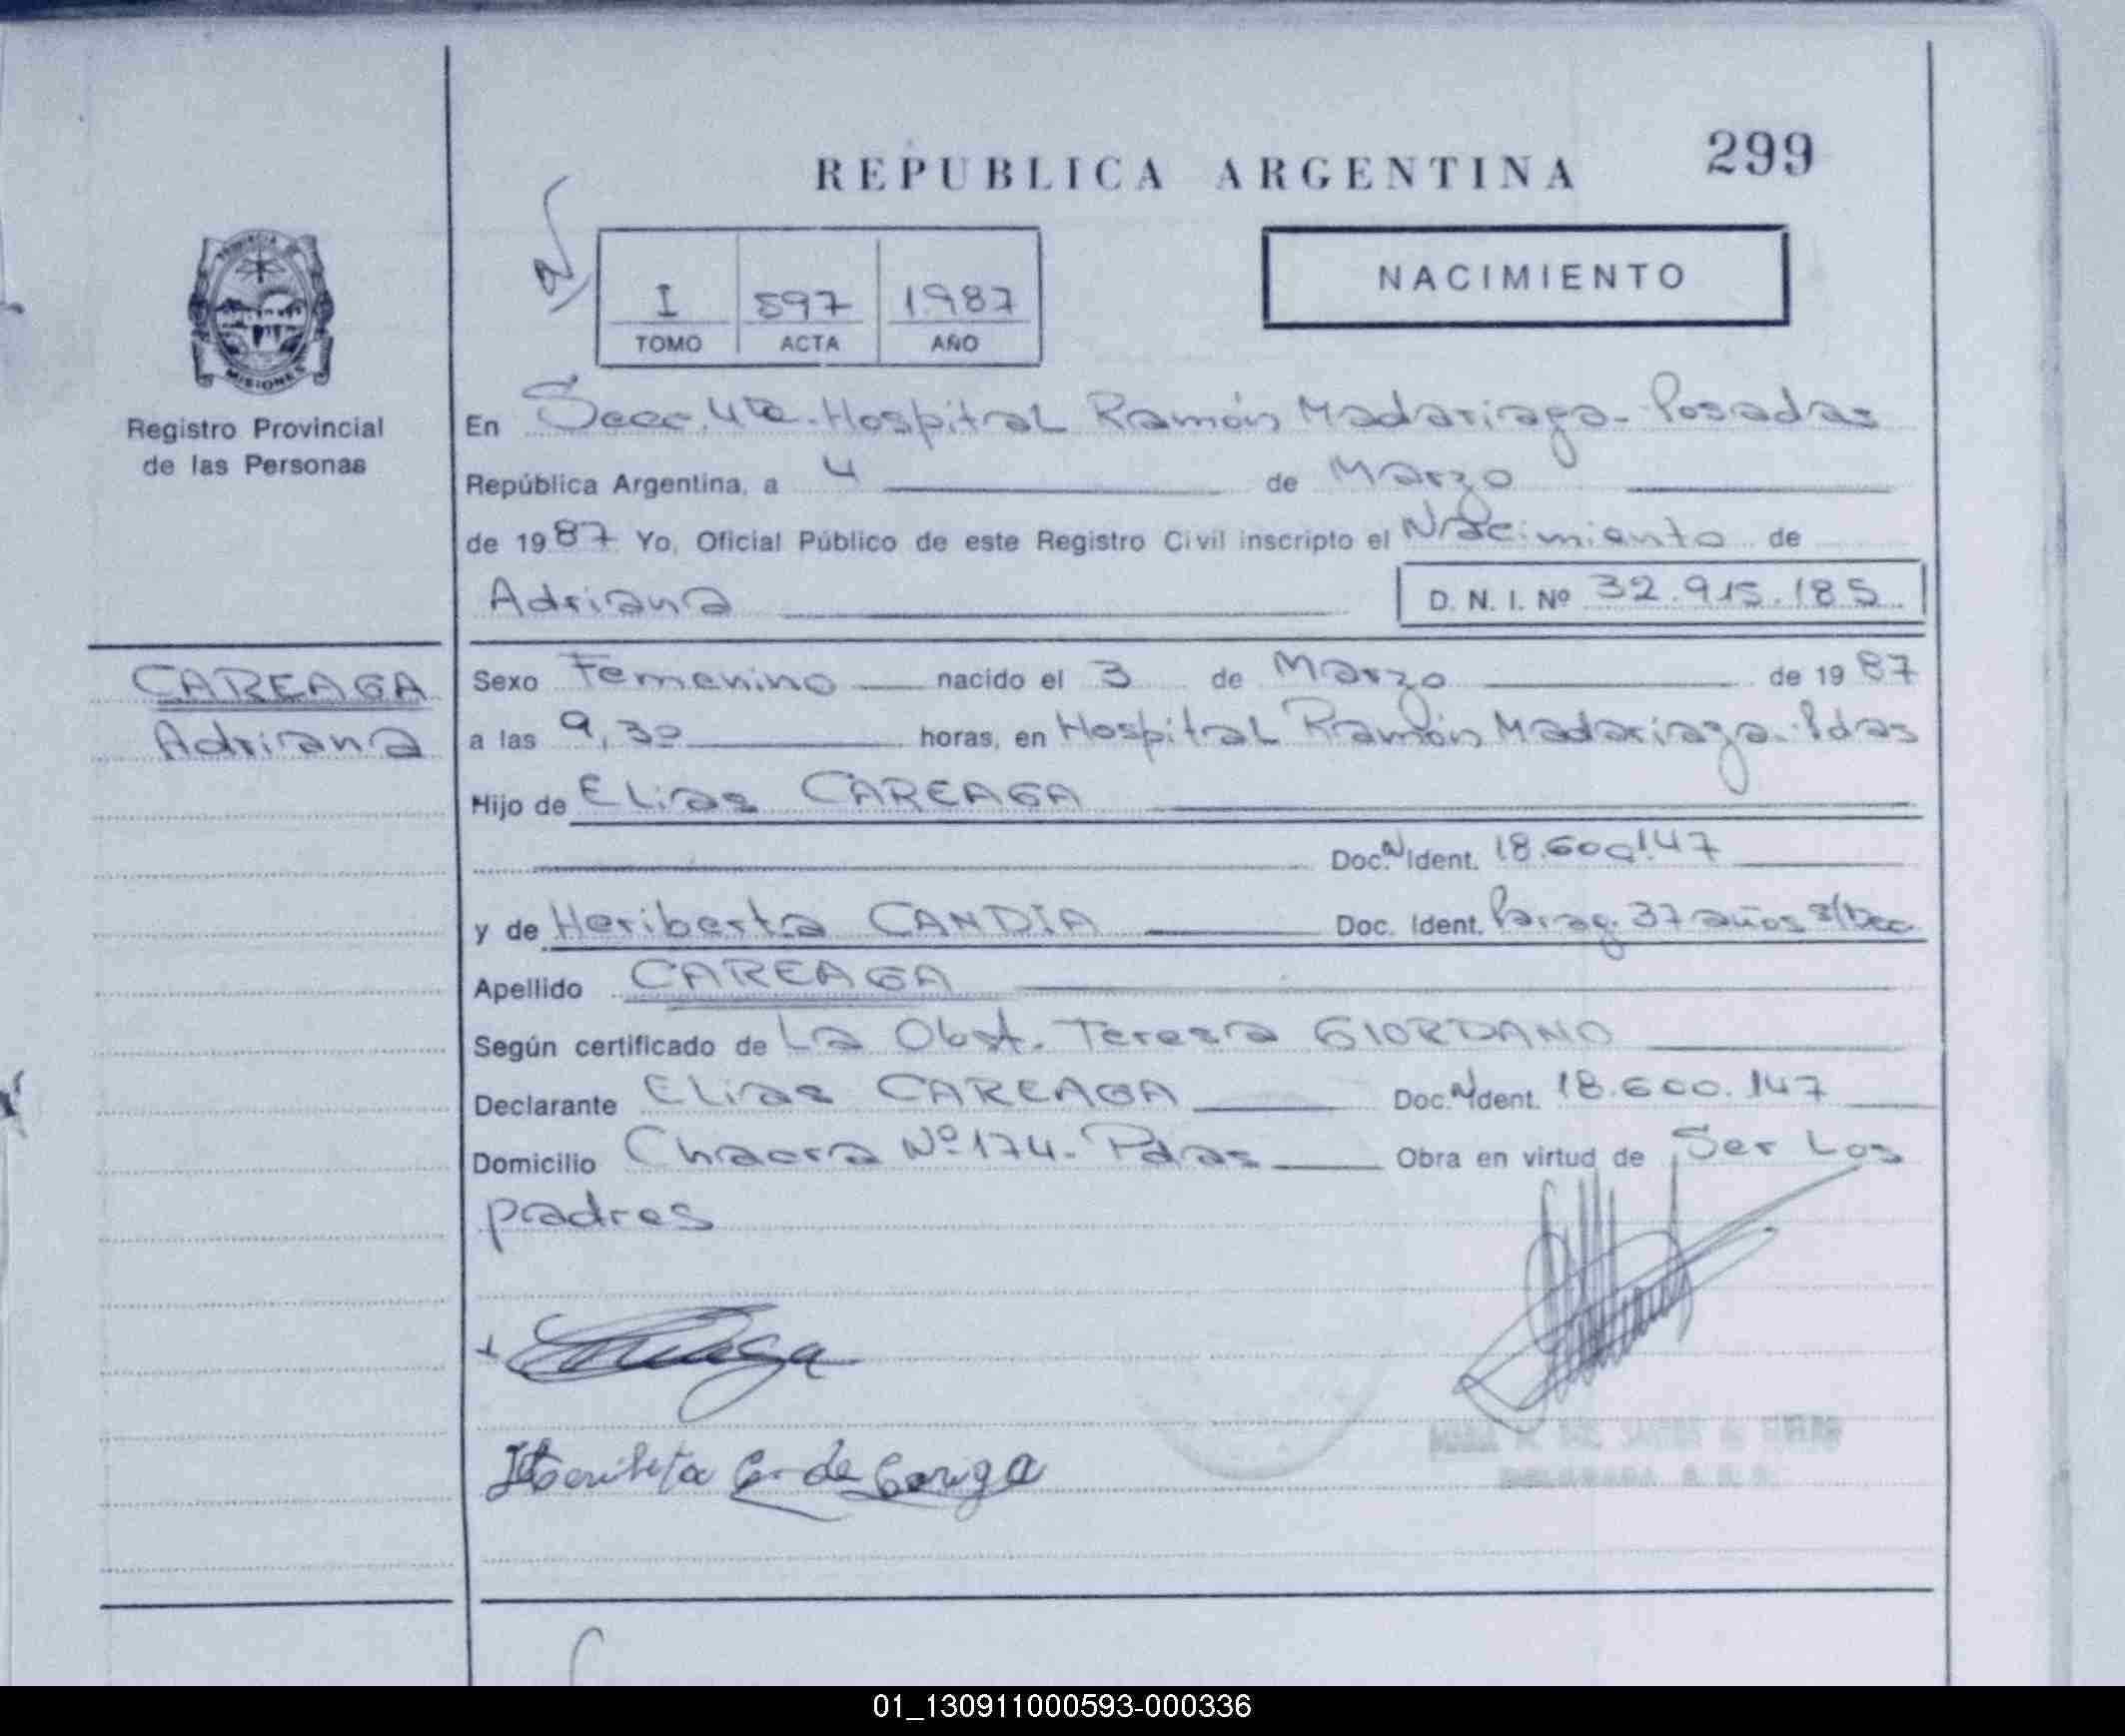 REPUBLICA ARGENTINA
299
I 597 1987
TOMO ACTA AÑO
NACIMIENTO
MISIONES
Registro Provincial
de las Personas
En Secc. 4ta. Hospital Ramón Madariaga - Posadas
República Argentina, a 4 de Marzo
de 1987 Yo, Oficial Público de este Registro Civil inscripto el Nacimiento de
Adriana D. N. I. Nº 32.915.185
CAREAGA
Adriana
Sexo Femenino nacido el 3 de Marzo de 1987
a las 9,30 horas, en Hospital Ramón Madariaga - Pdas
Hijo de Elias CAREAGA
Doc. Ident. 18.600.147
y de Heriberta CANDIA Doc. Ident. Parag. 37 años
Apellido CAREAGA
Según certificado de La Obst. Teresa GIORDANO
Declarante Elias CAREAGA Doc. Ident. 18.600.147
Domicilio Chacra Nº 174 - Pdas Obra en virtud de Ser Los
padres
01_130911000593-000336